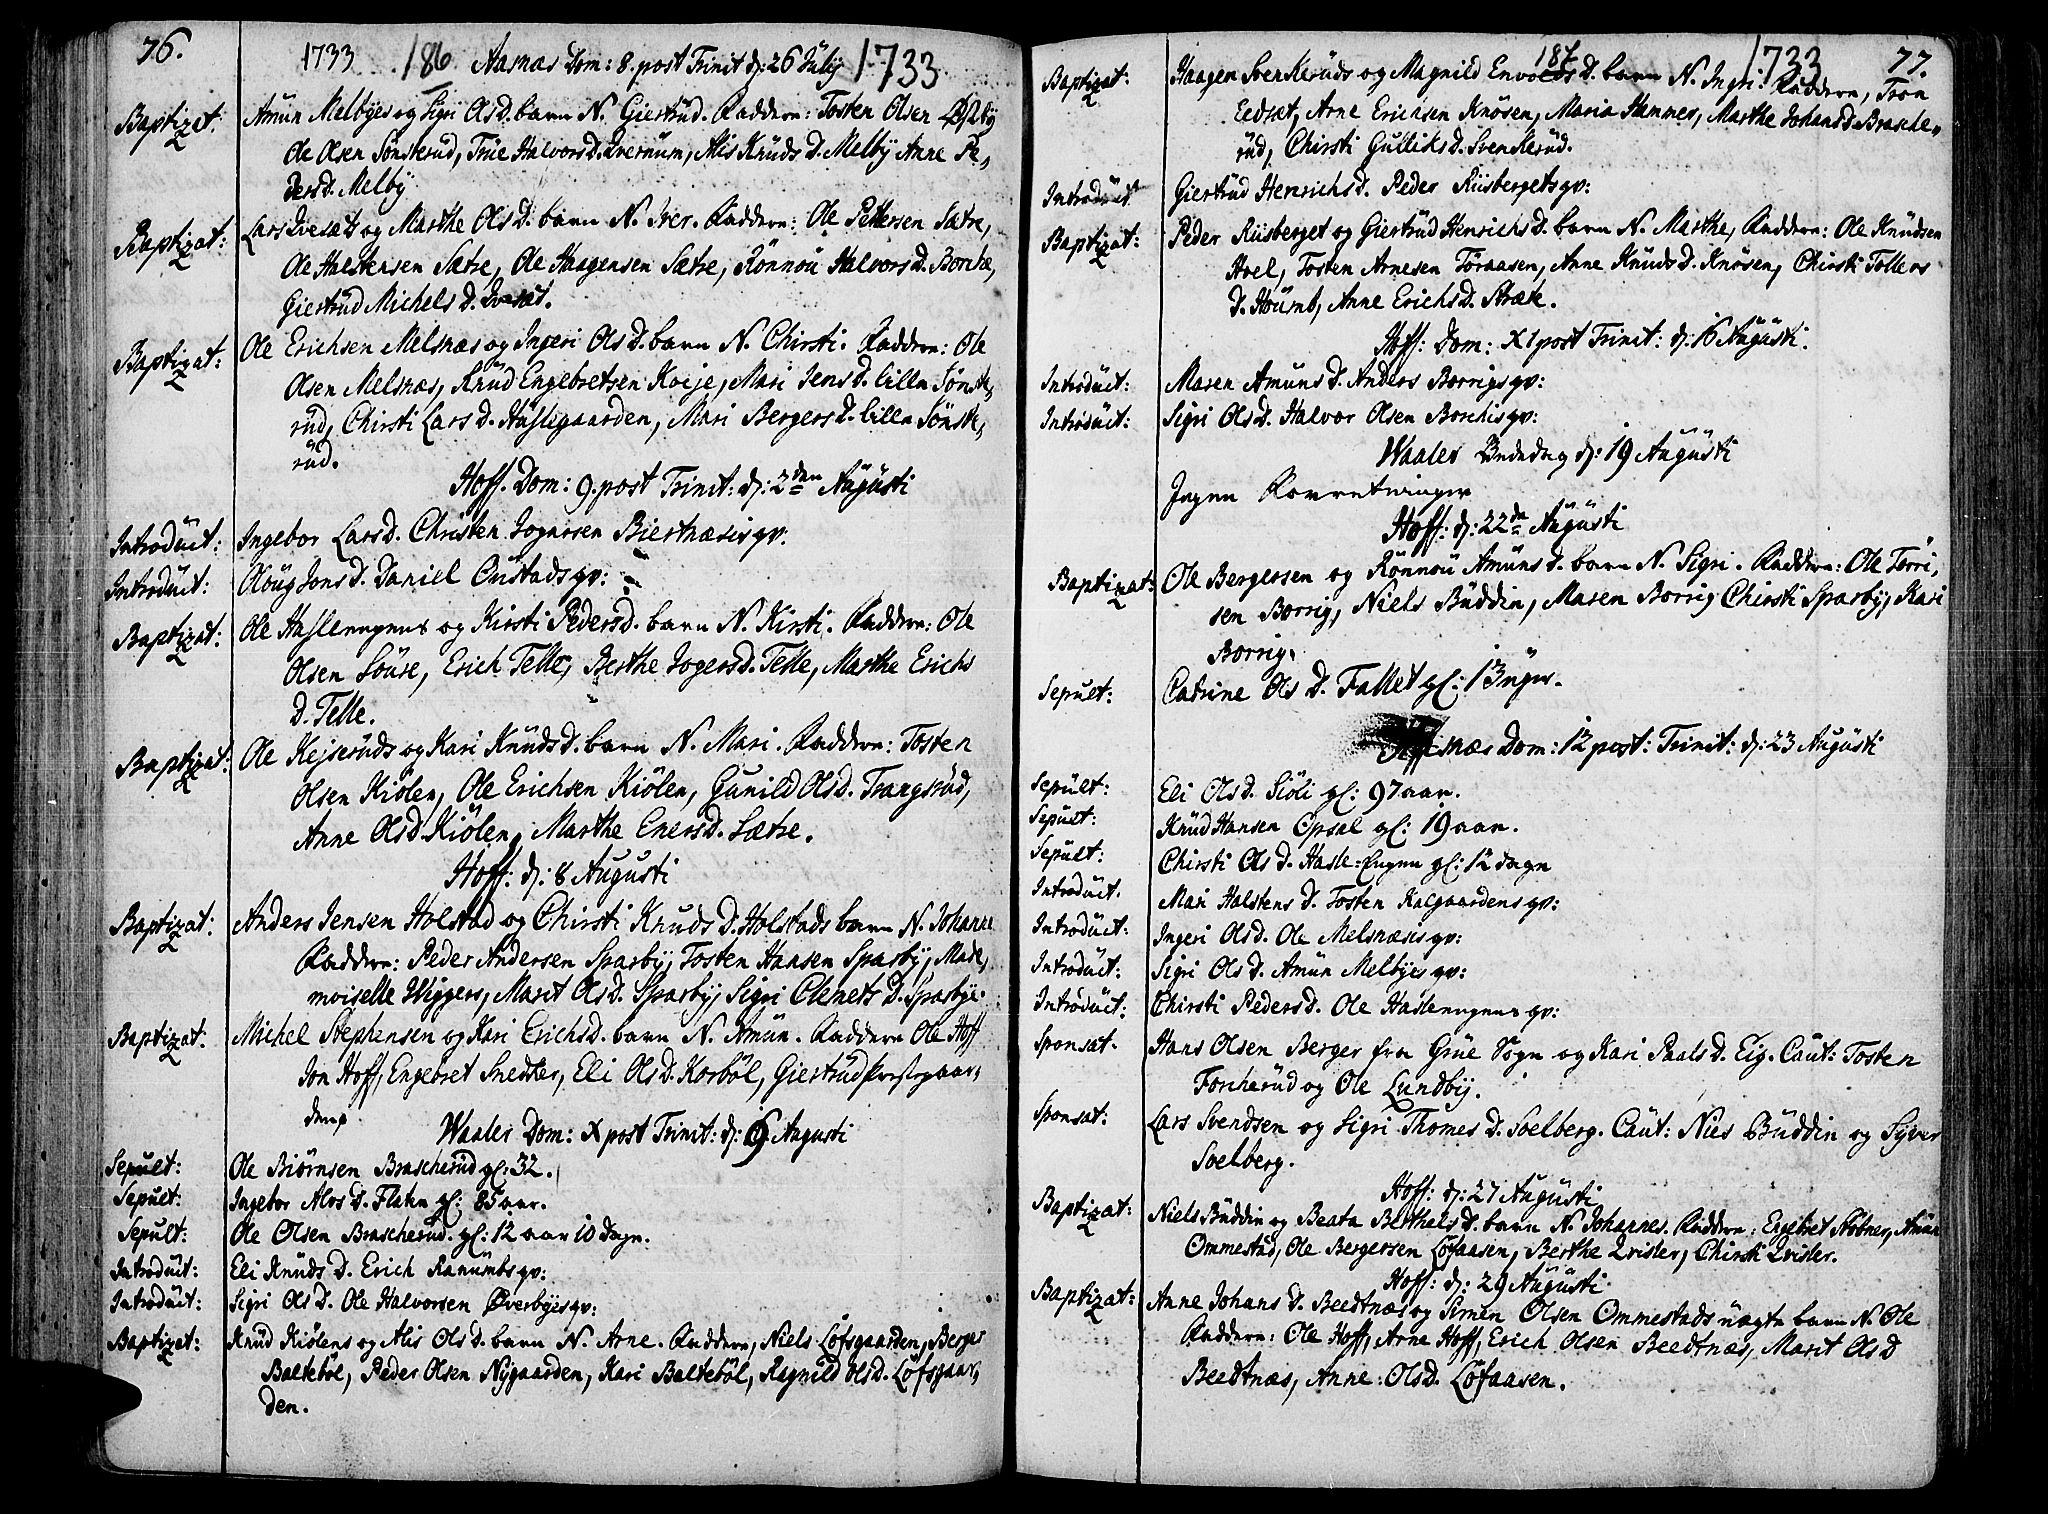 76.
1733 186 Aasnas Dom: 8. post Trinit d: 26 Julij 1733
Baptizet: Amun Melbyes og Sigri OlsD. barn N. Giertrud. Faddere: Tosten Olsen
Ole Olsen Sønsterud, True HalvorsD. Qvernum, Alis KnudsD. Melby Anne Pe,
dersD. Melby
Baptizat: Lars Qvesæts og Marthe OlsD. barn N. Iver. Faddere: Ole Pettersen Sætre,
Ole Halstensen Sætre, Ole Haagensen Sætre, Rönnou HalvorsD. Borche,
Giertrud MichelsD. Qvesæt.
Baptizat: Ole Erichsen Melsnæs og Ingeri OlsD. barn N. Chirsti. Faddere: Ole
Olsen Melsnæs, Knud Engebretsen Koije, Mari JensD. lille Sönste,
rud, Chirsti LarsD. Haslegaarden, Mari BergersD. lille Sönste,
rud.
Hoff. Dom: 9. post Trinit: d: 2den Augusti
Introduct: Ingebor LarsD. Christen Jognesen Biertnæsis qv.
Introduct: Oloug JonsD. Daniel Onstads qv:
Baptizat: Ole Hasleengens og Kirsti PedersD. barn N. Kirsti. Faddere: Ole
Olsen Souse, Erich Telle, Berthe JogersD. Telle, Marthe Erichs
D. Telle.
Baptizat: Ole Kejseruds og Kari KnudsD. barn N. Mari. Faddere: Tosten
Olsen Kiölen, Ole Erichsen Kiölen, Gunild OlsD. Trangsrud,
Anne OlsD. Kiölen, Marthe EnersD. Sætre.
Hoff: d: 8 Augusti
Baptizat: Anders Jensen Holstad og Chirsti KnudsD. Holstads barn N. Johanne
Faddere: Peder Andersen Sparby, Tosten Hansen Sparby, Made,
moiselle Wiggers, Marit OlsD. Sparby, Sigri Clemets D. Sparbye.
Baptizat. Michel Stephensen og Kari ErichsD. barn N. Amun. Faddere Ole Hoff
Jon Hoff, Engebret Snedker, Eli OlsD. Korböl, Giertrud Prestegaar,
dens
Waaler Dom: X post Trinit: d: 9 Augusti
Sepult: Ole Biørnsen Brascherud gl: 32.
Sepult: Ingebor AlvsD. Flaten gl: 85 aar.
Sepult: Ole Olsen Brascherud. gl: 12 aar 10 dage.
Introduct: Eli KnudsD. Erich Ranumbs qv:
Introduct: Sigri OlsD. Ole Halvorsen Øverbyes qv:
Baptizet: Knud Kiölens og Alis OlsD. barn N. Arne. Faddere, Niels Löfsgaarden, Berger
Balteböl, Peder Olsen Nygaarden, Kari Balteböl, Ragnild OlsD. Löfsgaar,
den.
187 1733 77.
Baptizat: Haagen Svenkeruds og Magnild EnvoldsD. barn N. Ingri: Faddere, Tron
Eedset, Arne Erichsen Knösen, Maria Hammer, Marthe JohansD. Brasche,
rud, Chirsti GulliksD. Svenkerud.
Introduct Giertrud HenrichsD. Peder Riisbergets qv:
Baptizat: Peder Riisberget og Giertrud HenrichsD. barn N. Marthe, Faddere: Ole Knudsen
Hoel, Tosten Arnesen Töraasen, Anne KnudsD. Knösen, Chirsti Tollevs
D. Hournb, Anne ErichsD. Stræte.
Hoff: Dom: XI post Trinit: d: 16 Augusti.
Introduct: Maren AmunsD. Anders Borrigs qv:
Introduct: Sigri OlsD. Halvor Olsen Borchis qv:
Waaler Bededag d: 19 Augusti
Ingen Forretninger
Hoff: d: 22de Augusti
Baptizat: Ole Bergersen og Rönnou AmunsD. barn N. Sigri. Faddere: Ole Torri,
sen Borrig, Niels Buddin, Maren Borrig Chirsti Sparby, Kari
Borrig.
Sepult: Catrine OlsD. Fallet gl: 13 uger.
Dom: 12 post: Trinit: d: 23 Augusti
Sepult: Eli OlsD. Siöli gl: 97 aar.
Sepult: Knud Hansen Opsal gl: 19 aar.
Sepult: Chirsti OlsD. Hasle-Engen gl: 12 dage
Introduct. Mari HalstensD. Tosten Kalgaardens qv:
Introduct: Ingeri OlsD. Ole Melsnæsis qv:
Introduct: Sigri OlsD. Amun Melbyes qv:
Introduct: Chirsti PedersD. Ole Haslengens qv:
Sponsat. Hans Olsen Berger fra Grue Sogn og Kari PaalsD. Eig. Caut: Tosten
Forcherud og Ole Lundby.
Sponsat: Lars Svendsen og Sigri ThomesD. Soelberg. Caut: Nies Buddin og Syver
Soelberg.
Hoff: d: 27 Augusti
Baptizat: Niels Buddin og Beata BerthelsD. barn N. Johannes. Faddere: Engebret Stöbner, Amun
Ommestad, Ole Bergersen Löfaasen, Berthe Qvisler, Chirsti Qvisler.
Hoff: d: 29 Augusti
Baptizat: Anne JohansD. Beedtnæs og Simen Olsen Ommestads uægte barn N. Ole
Faddere: Ole Hoff, Arne Hoff, Erich Olsen Beedtnæs, Marit OlsD
Beedtnæs, Anne OlsD. Löfaasen.